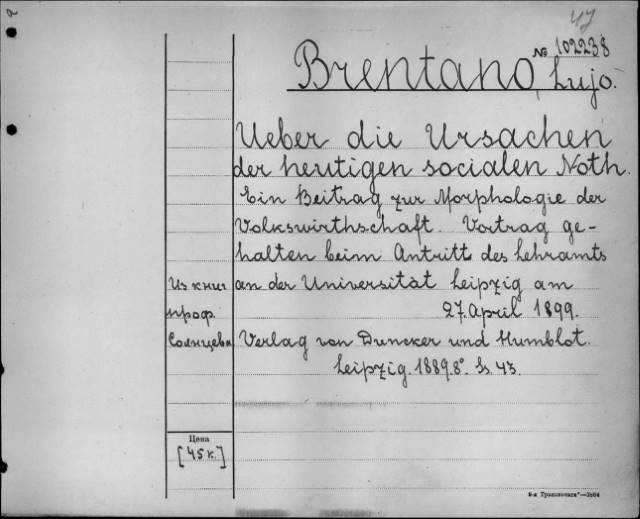 47
№ 102238
Brentano, Lujo.
Ueber die Ursachen
der heutigen socialen Noth.
Ein Beitrag zur Morphologie der
Volkswirthschaft. Vortrag ge-
halten beim Antritt des Lehramts
Из книг an der Universität Leipzig am
проф. 27. April 1899.
Солнцева Verlag von Duncker und Humblot.
Leipzig. 1889. 8°. Ss. 43.
Цена
[45 к.]